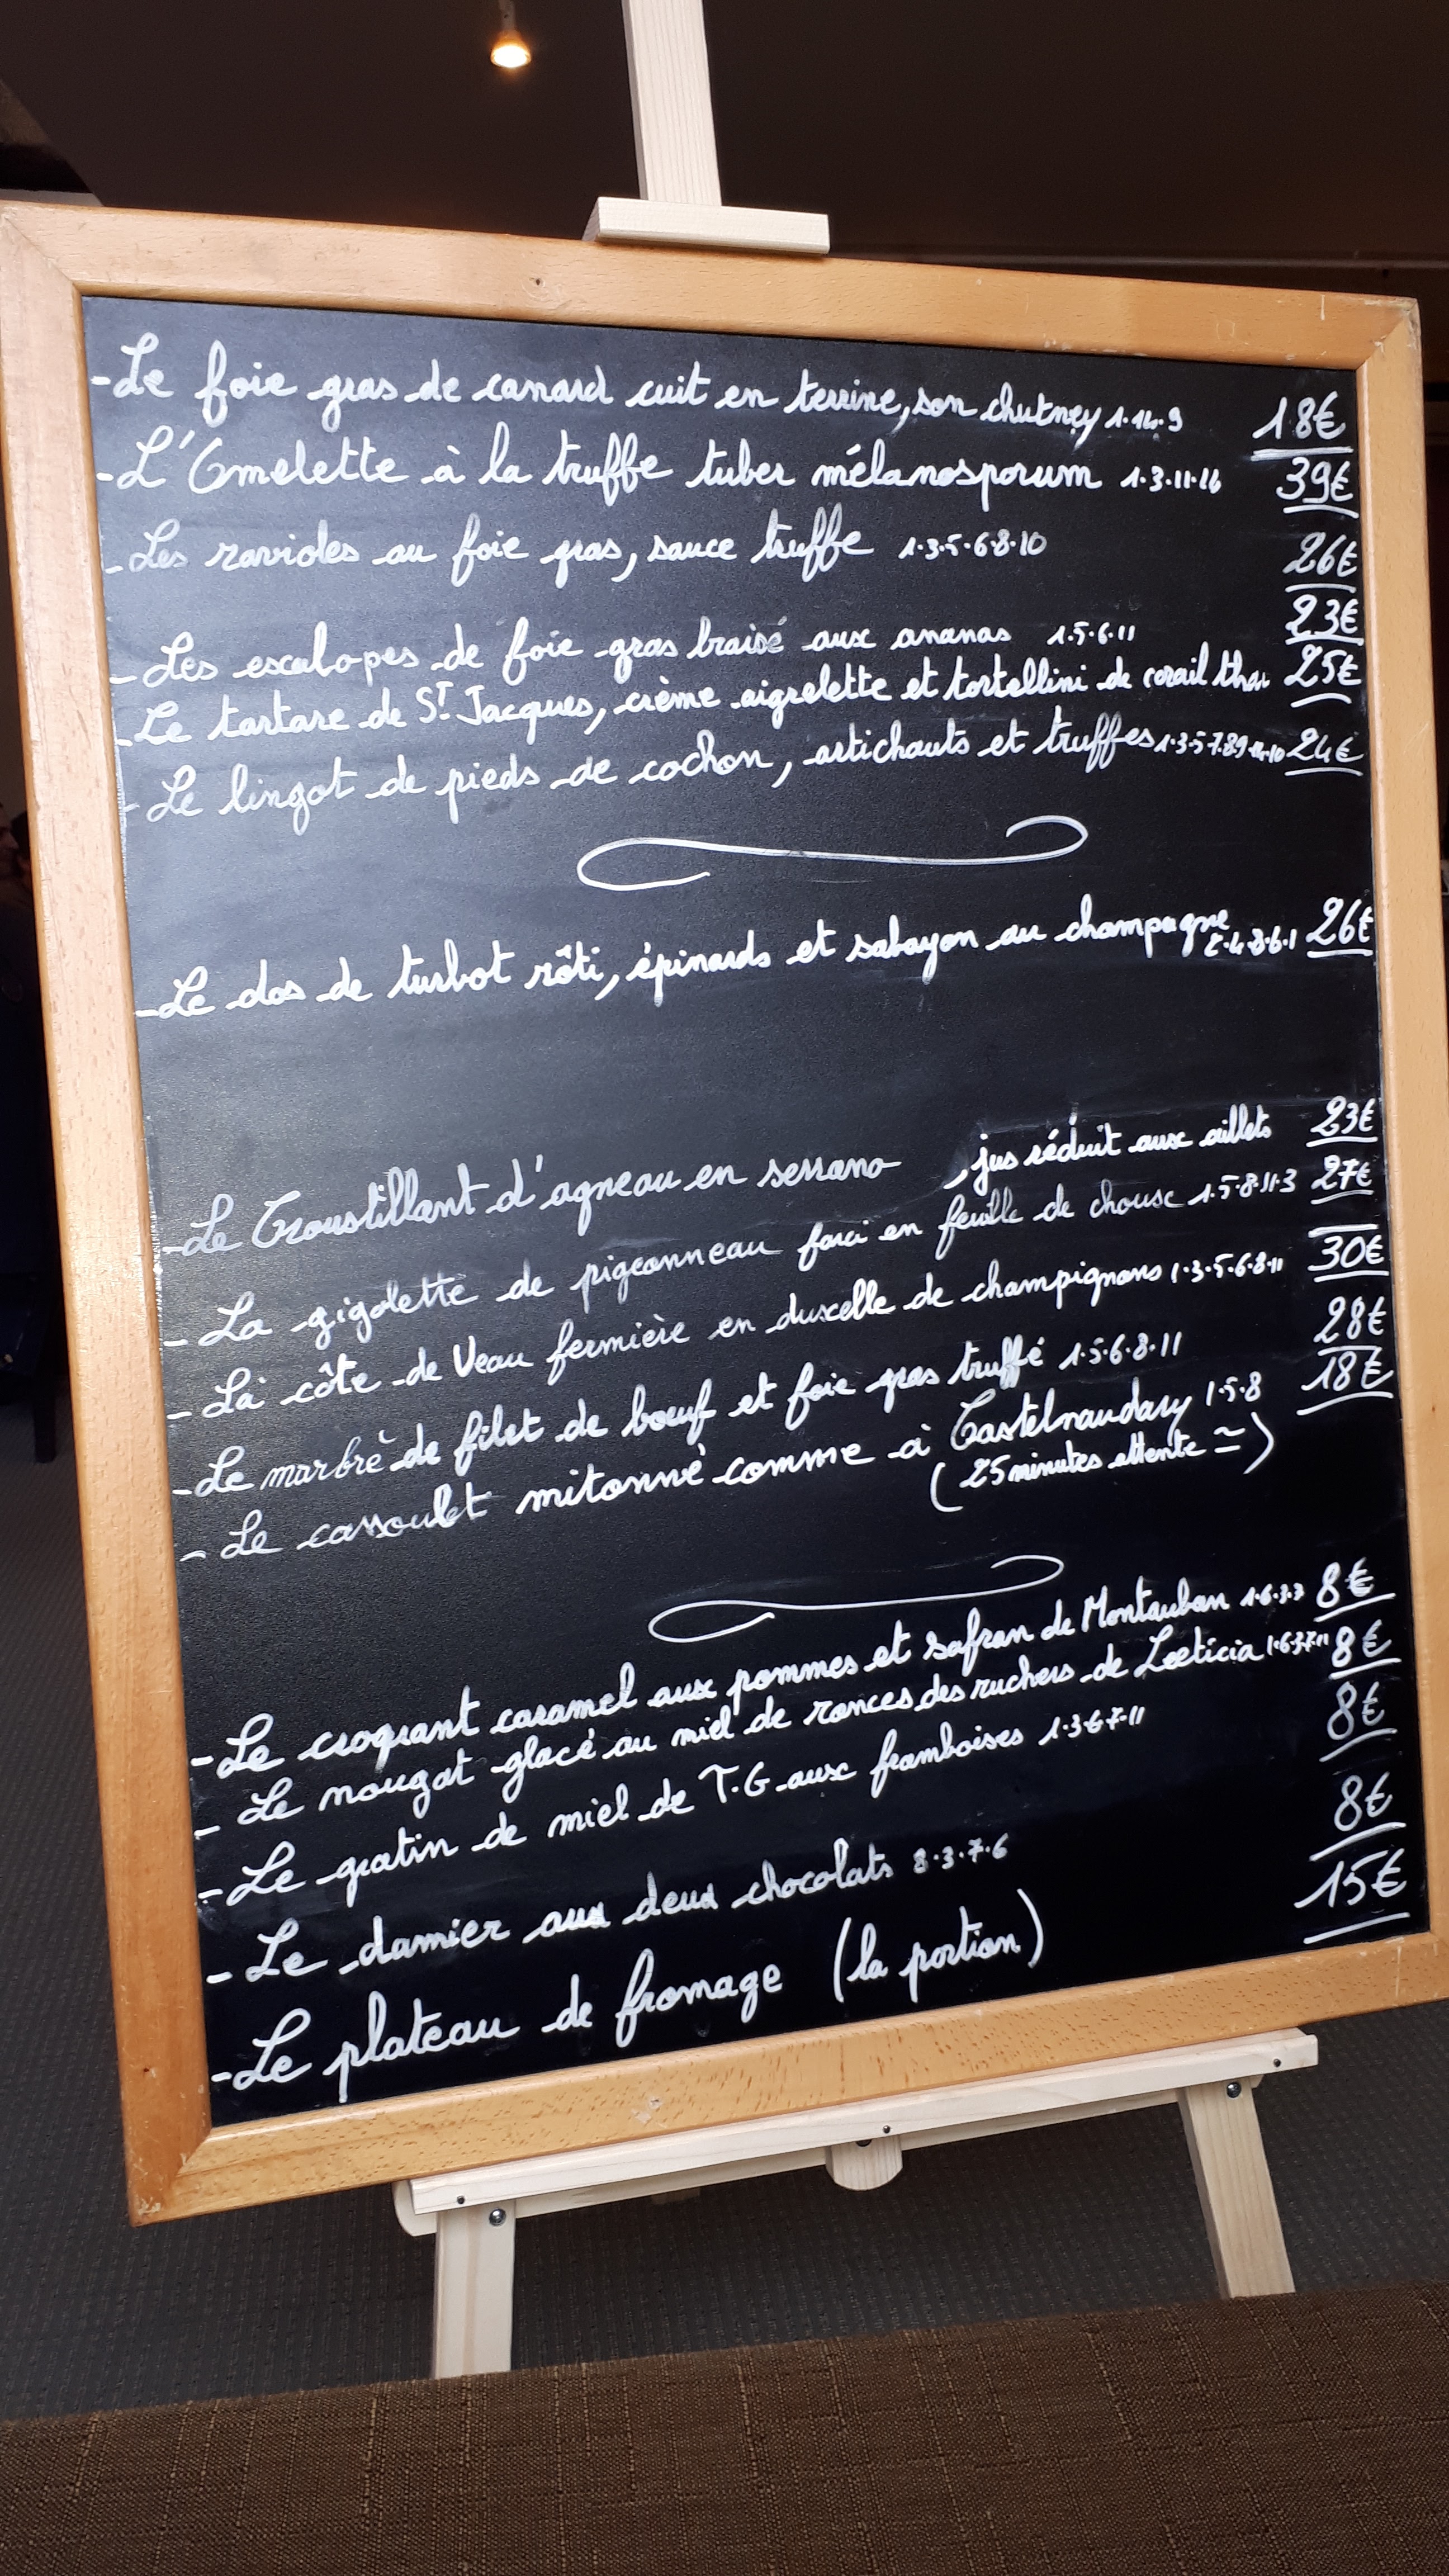 -Le foie gras de canard cuit en terrine, son chutney 1.14.9 18€
-L'Omelette à la truffe tuber mélanosporum 1.3.11.14 39€
-Les ravioles au foie gras, sauce truffe 1.3.5.6.8.10 26€
-Les escalopes de foie gras braisé aux ananas 1.5.6.11 23€
-Le tartare de St Jacques, crème aigrelette et tortellini de corail 25€
-Le lingot de pieds de cochon, artichauts et truffes 1.3.5.7.8.9.14.10 24€
-Le dos de turbot rôti, épinards et sabayon au champagne 26€
-Le Croustillant d'agneau en serrano , jus réduit aux aillets 23€
-La gigolette de pigeonneau farci en feuille de choux 1.5.8.11.3 27€
-La côte de Veau fermière en duxcelle de champignons 1.3.5.6.8.11 30€
-Le marbré de filet de bœuf et foie gras truffé 1.5.6.8.11 28€
-Le cassoulet mitonné comme à Castelnaudary 1.5.8 18€
(25 minutes attente ≃)
-Le croquant caramel aux pommes et safran de Montauban 1.6.3.3 8€
-Le nougat glacé au miel de ronces des ruchers de Laeticia 1.6.3.7.11 8€
-Le gratin de miel de T.G aux framboises 1.3.6.7.11 8€
-Le damier aux deux chocolats 8.3.7.6 8€
-Le plateau de fromage (la portion) 15€